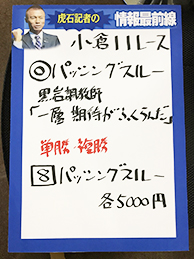 虎石記者の
情報最前線
小倉11レース
◎パッシングスルー
黒岩調教師
「一層期待がふくらんだ」
単勝・複勝
8パッシングスルー
各5000円